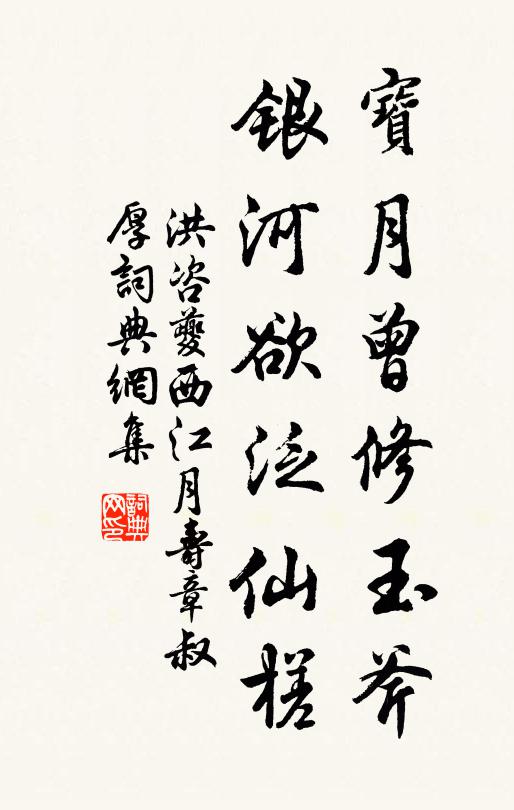 寶月曾修玉斧
銀河欲泛仙槎
洪咨夔西江月壽章叔
厚詞典網集
詞典网印